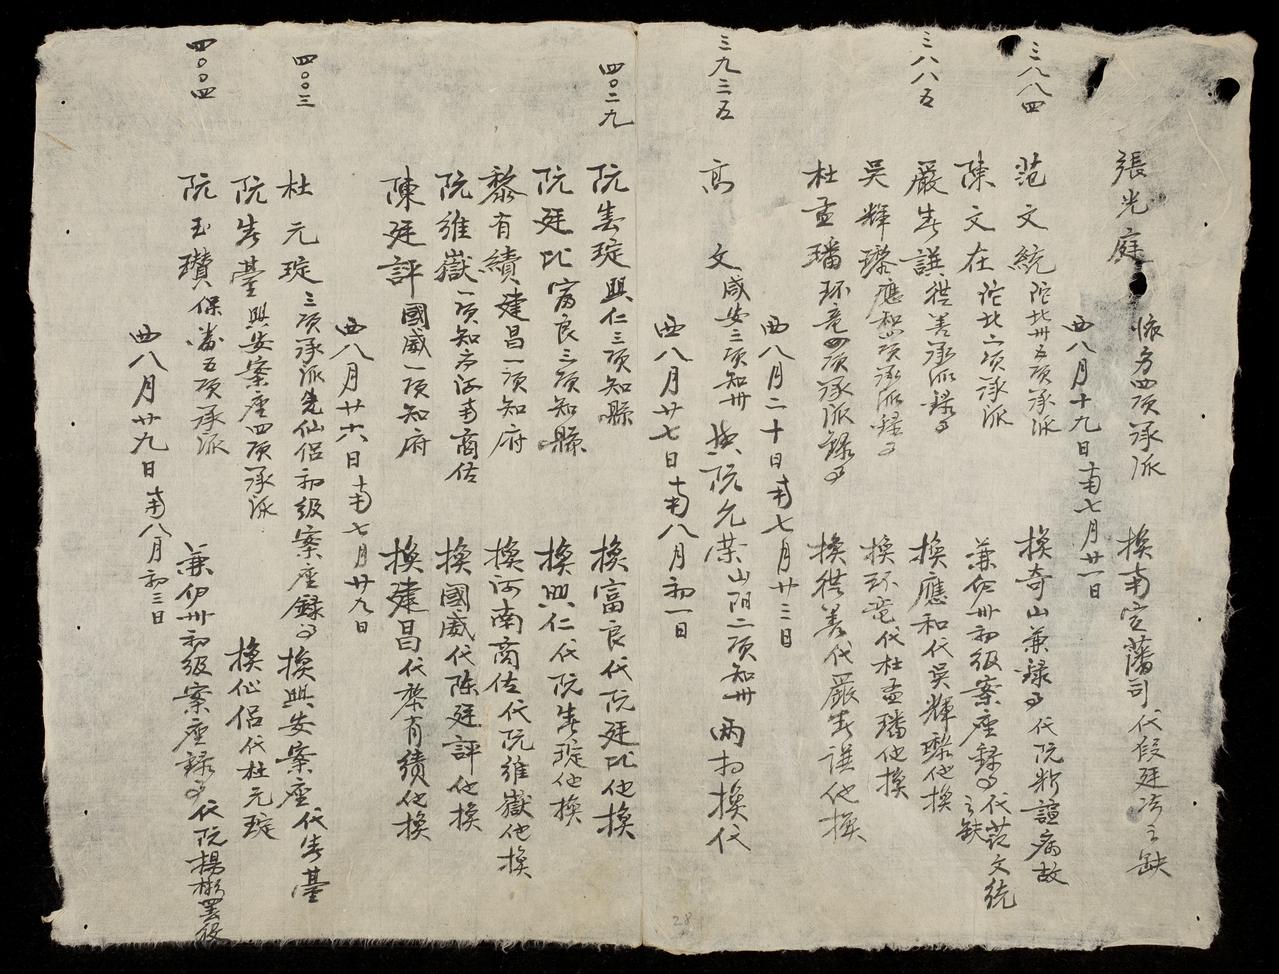 張光庭 懷方四項承派 換南定藩司代假廷 之缺
西八月十九日南七月廿一日
三八八四 范文統陀北卅五項承派 換奇山兼録事代阮 諠病故
陳文在陀北二項承派 兼伊卅初級案座録事代范文統之缺
三八八五 嚴春譔從善承派録事 換應和代吳輝璨他換
吳輝璨應和四項承派録事 換环竜代杜孟璠他換
杜孟璠环竜四項承派録事 換從善代嚴春譔他換
西八月二十日南七月廿三日
三九三五 高文咸安三項知卅 與阮允荣山阴二項知卅 兩相換代
西八月廿七日南八月初一日
四〇二九 阮春琔興仁三項知縣 換富良代阮廷比他換
阮廷比富良三項知縣 換興仁代阮春琔他換
黎有績建昌一項知府 換河南商佐代阮維嶽他換
阮維嶽一項知府河南商佐 換國威代陳廷評他換
陳廷評國威一項知府 換建昌代黎有績他換
西八月廿六日南七月廿九日
四〇〇三 杜元琔三項承派先仙侶初級案座録事 換興安案座代春臺
阮春臺興安案座四項承派 換仙侶代杜元琔
四〇〇四 阮玉瓚保 五項承派 兼伊卅初級案座録事代阮楊彬罢役
西八月廿九日南八月初三日
28